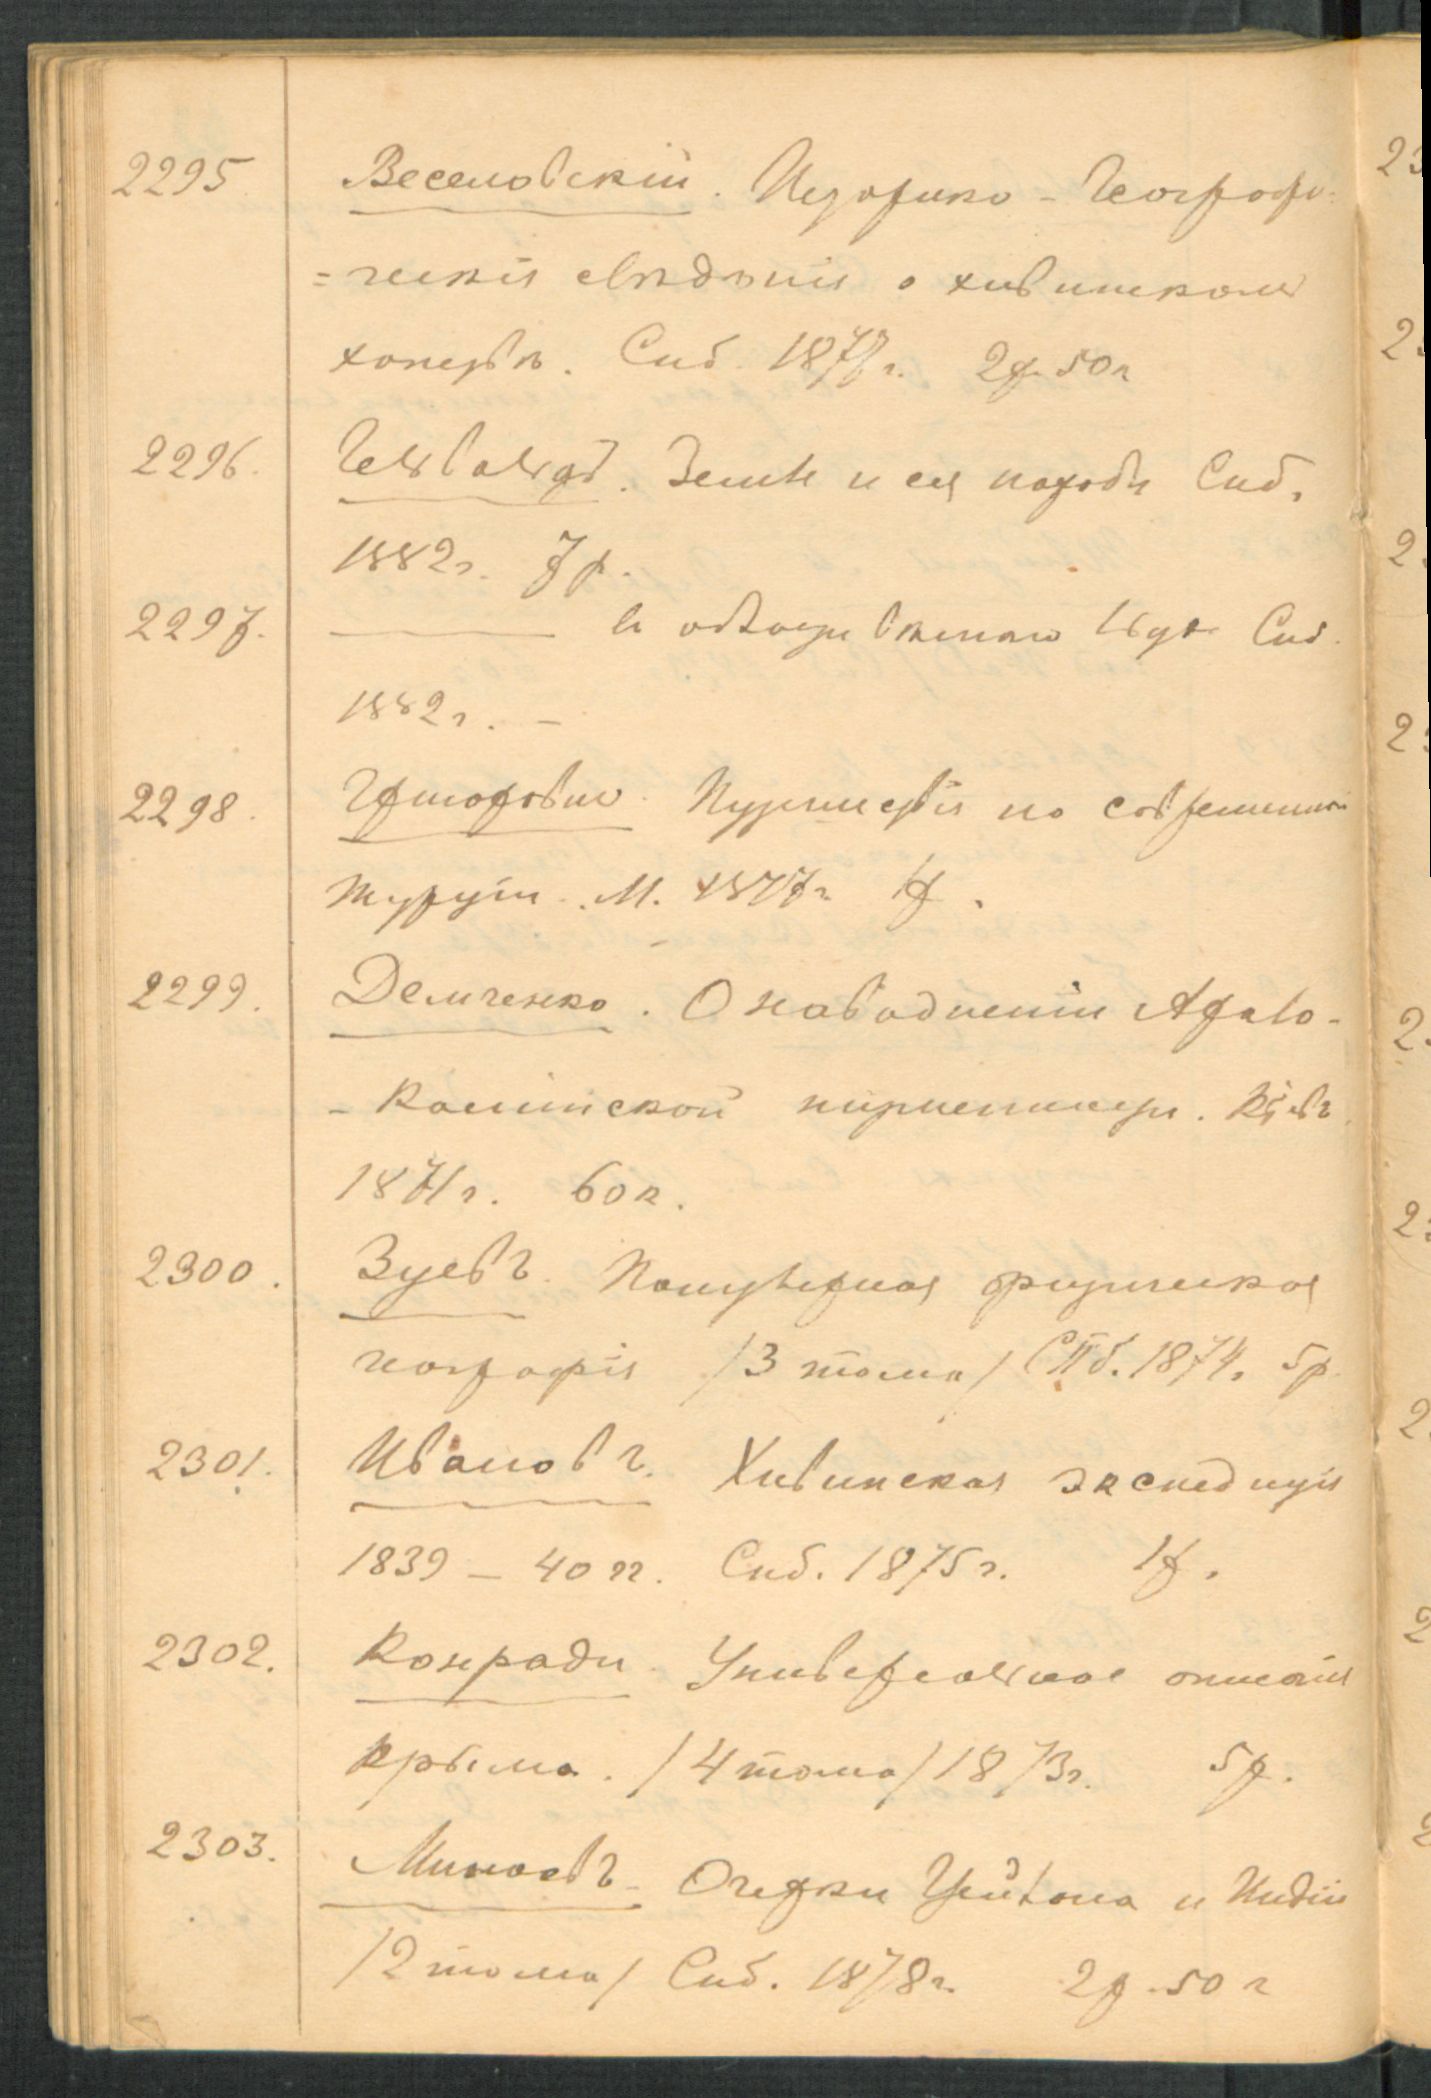 2295 Веселовскій. Историко-Географи-
=ческія свѣдѣнія о хивинскомъ
ханствѣ. Спб. 1877г. 2р. 50к
2296. Гельвальдъ. Земля и ея народы Спб.
1882г. 7р.
2297. Спб.
1882г. –
2298. Путешествія по современной
М. 1877г. 1р.
2299. Демченко. О наводненіи Арало-
-Каспійской низменности. Кіевъ
1871г. 60к.
2300. Зуевъ. Популярная физическая
географія /3 тома/ СПб. 1874. 5р.
2301. Ивановъ. Хивинская экспедиція
1839 – 40 гг. Спб. 1875г. 1р.
2302. Конради. Универсальное описанія
Крыма. /4 тома/ 1873г. 5р.
2303. Минаевъ. Очерки Цейлона и Индіи
/2 тома/ Спб. 1878г. 2р. 50к